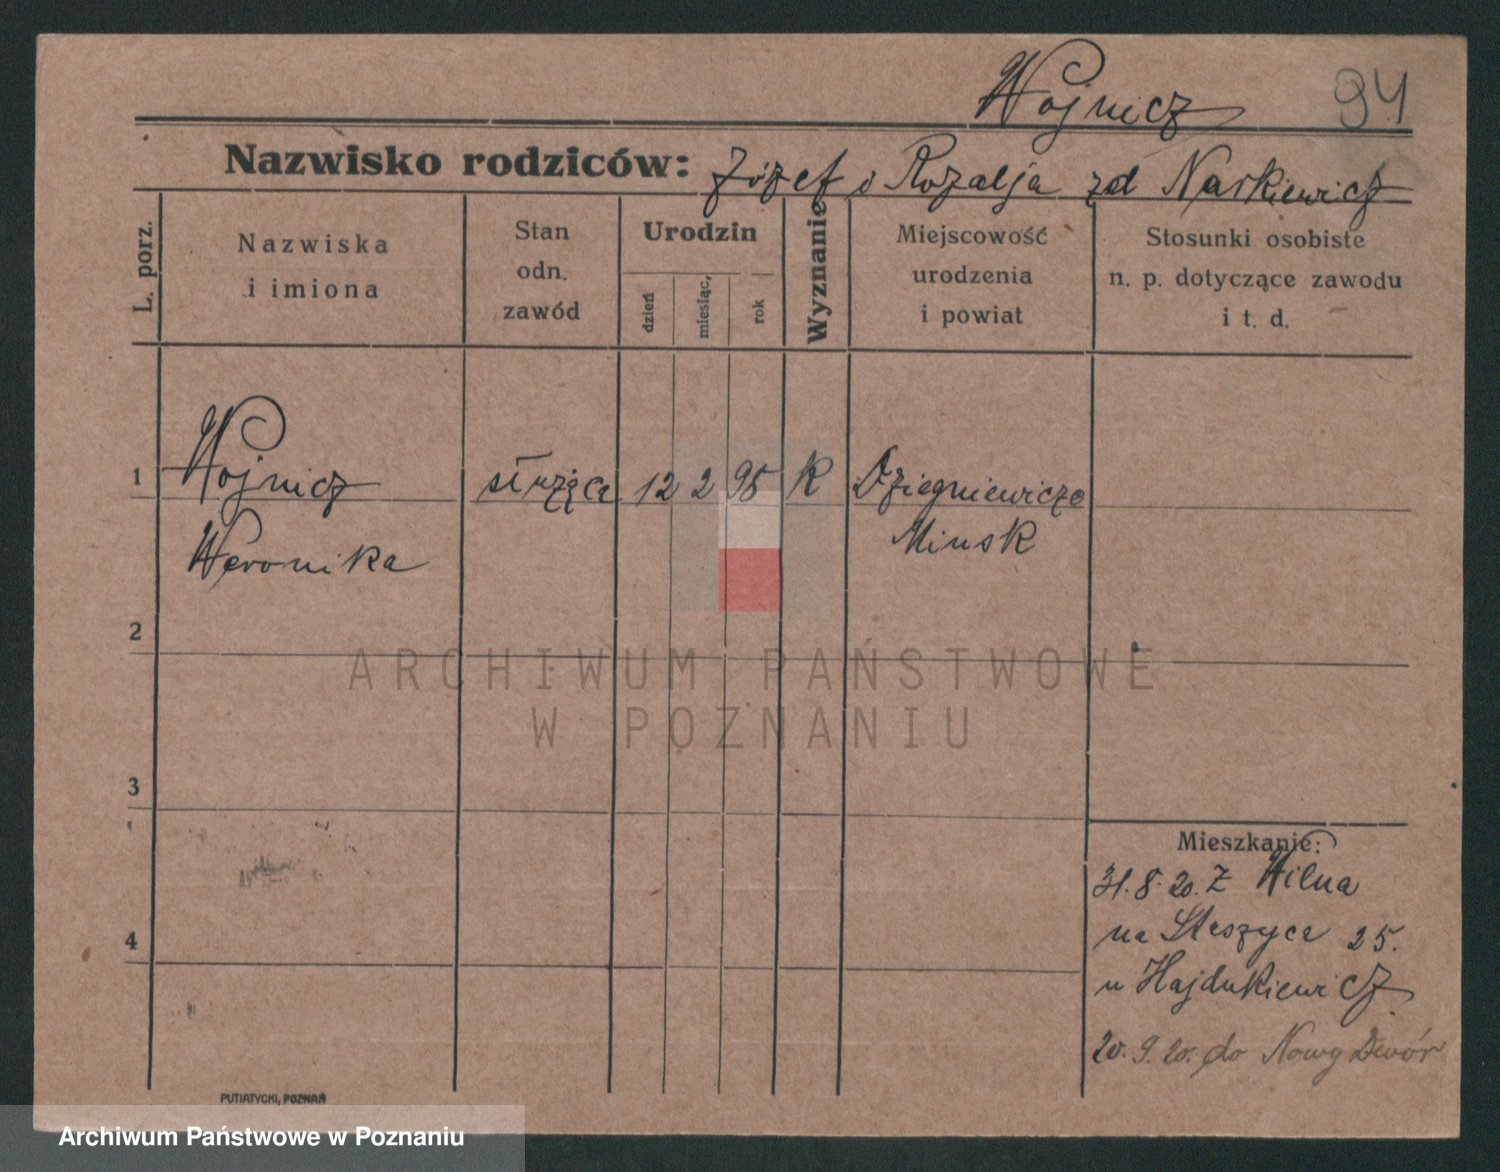 Wojnicz 94
Nazwisko rodziców: Józef i Rozalja zd Narkiewicz
L. porz.
Nazwiska
i imiona
Stan
odn.
zawód
Urodzin
dzień
miesiąc,
rok
Wyznanie
Miejscowość
urodzenia
i powiat
Stosunki osobiste
n. p. dotyczące zawodu
i t. d.
1 Wojnicz służąca 12 2 95 K Dziegniewicze
Weronika Minsk
2
ARCHIWUM PAŃSTWOWE
W POZNANIU
3
Mieszkanie:
31.8.20. Z Wilna
na Staszyca 25.
u Hajdukiewicz
4
20.9.20. do Nowy Dwór
PUTIATYCKI, POZNAŃ
Archiwum Państwowe w Poznaniu